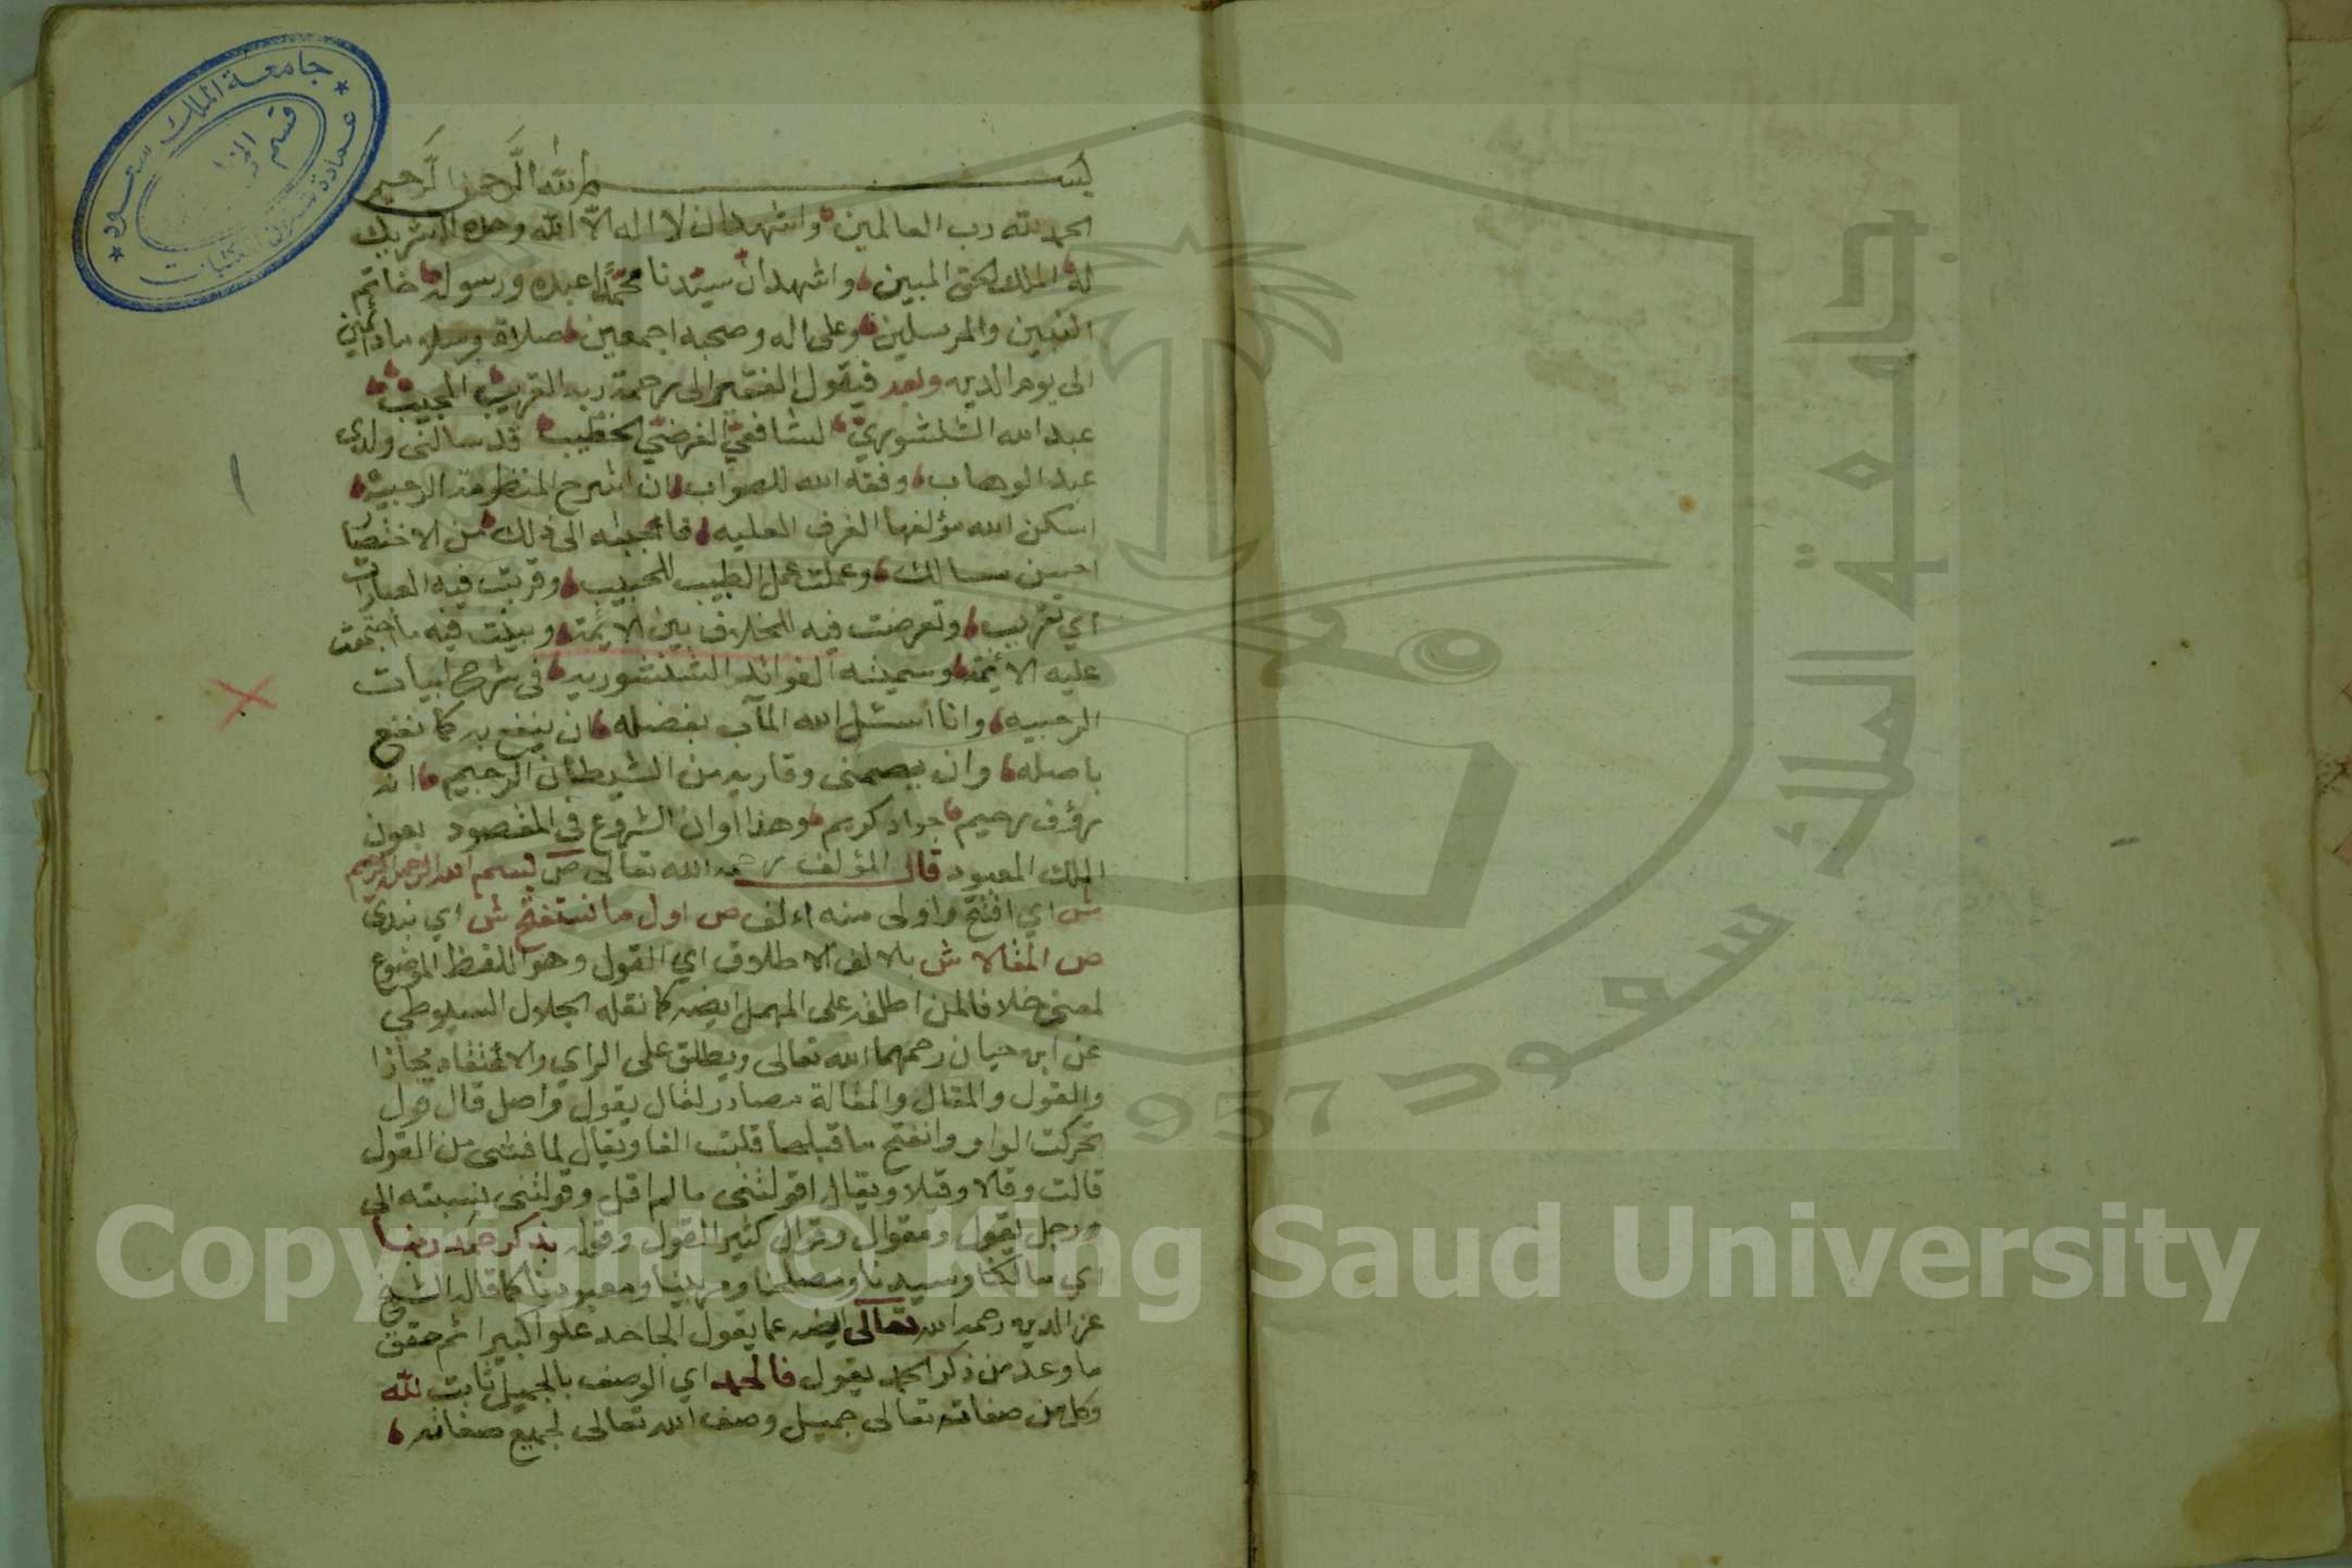 بسم الله الرحمن الرحيم
الحمد لله رب العالمين واشهد ان لا اله الا الله وحده لا شريك
له الملك الحق المبين واشهد ان سيدنا محمدا عبده ورسوله خاتم
النبين والمرسلين وعلى اله وصحبه اجمعين صلاة وسلاما دائمين
الى يوم الدين وبعد فيقول الفقير الى رحمة ربه القريب المجيب
عبد الله الشنشوري الشافعي الفرضي الخطيب قد سالني ولدي
عبد الوهاب وفقه الله للصواب ان اشرح المنظومة الرحبية
اسكن الله مؤلفها الغرف العليه فاجبته الى ذلك من الاختصار
احسن مسالك وعملت عمل الطبيب للحبيب وقربت فيه العبارات
اي تقريب وتعرضت فيه للخلاف بين الائمة وبينت فيه ما اجتمعت
عليه الائمة وسميته الفوائد الشنشورية في شرح ابيات
الرحبيه وانا اسئل الله المآب بفضله ان ينفع به كما نفع
باصله وان يعصمني وقاريه من الشيطان الرجيم انه
رؤف رحيم جواد كريم وهذا اوان الشروع في المقصود بعون
الملك المعبود قال المؤلف رحمه الله تعالى ص بسم الله الرحمن الرحيم
ش اي افتتح واولى منه اءلف ص اول ما نستفتح ش اي نبدي
ص المقالا ش بالالف الاطلاق اي القول وهو اللفظ الموضوع
لمعنى خلافا لمن اطلقه على المهمل ايضه كما نقله الجلال السيوطي
عن ابن حيان رحمهما الله تعالى ويطلق على الراي والاعتقاد مجازا
والقول والمقال والمقالة مصادر لقال يقول واصل قال قول
تحركت الواو وانفتح ما قبلها قلبت الفا ويقال لما فشى من القول
قالت وقالا وقيلا ويقال اقولتني ما لم اقل وقولتني نسبته الي
ورجل يقول ومقوال وقوال كثير القول وقوله بذكر حمد ربنا
اي مالكنا وسيدنا ومصلحنا ومربينا ومعبودنا كما قال الشيخ
عز الدين رحمه الله تعالى ايضه عما يقول الجاحد علوا كبيرا ثم حقق
ما وعد من ذكر الحمد بقول فالحمد اي الوصف بالجميل ثابت لله
وكل من صفاته تعالى جميل وصف الله تعالى لجميع صفاته
جامعة الملك سعود
عمادة شئون المكتبات
قسم
جامعة الملك سعود
1957
Copyright © King Saud University